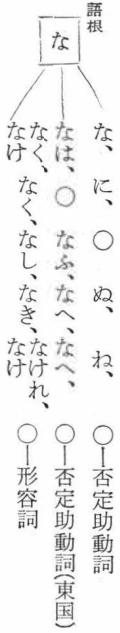 語根
な
な、に、○ ぬ、ね、 ○―否定助動詞
なは、○ なふ、なへ、なへ、 ○―否定助動詞(東国)
なく、なく、なし、なき、なけれ、 ○―形容詞
なけ なけ